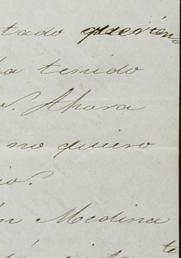 tado querién=
ha tenido
o. Ahora
no quiero
io.
ín Medina